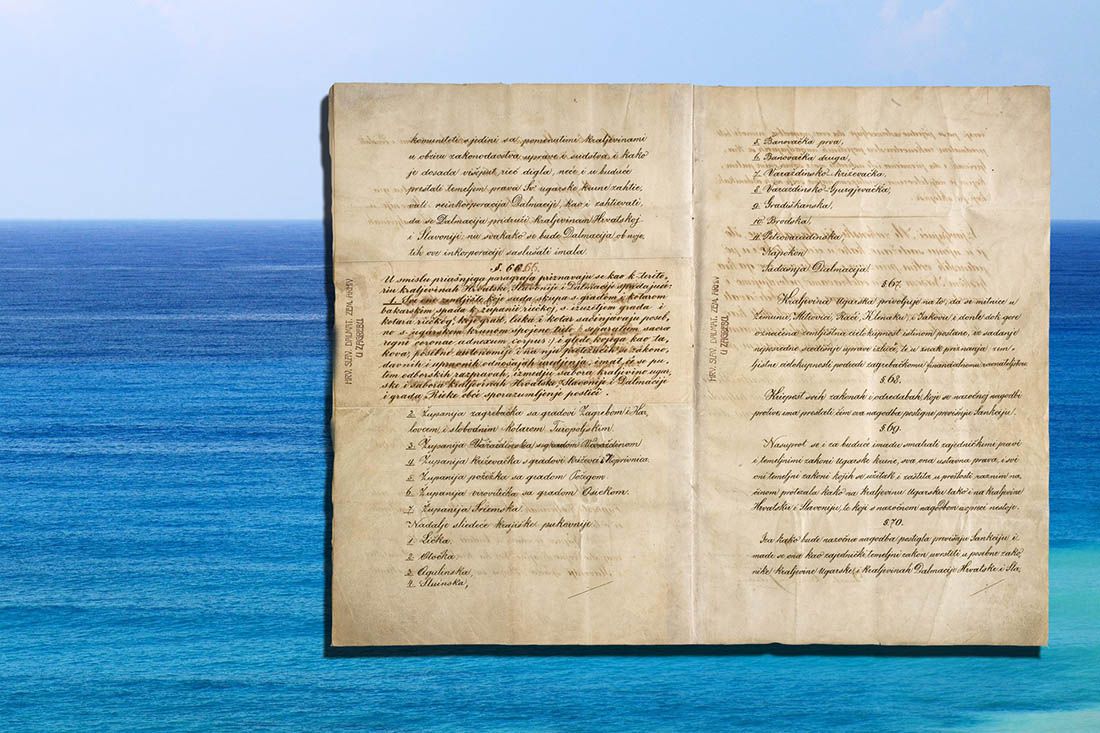 komuniteti sjedini sa pomenutimi kraljevinami
u obziru zakonodavstva uprave i sudstva i kako
je dosada višeput rieč digla, neće i u buduće
prestati temeljem prava Sv. ugarske krune zahtie,
vati reinkorporaciju Dalmacije, kao i zahtievati,
da se Dalmacija pridruži kraljevinam Hrvatskoj
i Slavoniji; nu svakako se bude Dalmacija ob uvje,
tih ove inkorporacije saslušati imala.
§. 66.
U smislu priašnjega paragrafa priznavaju se kao k terito,
riu kraljevinah Hrvatske, Slavonije i Dalmacije spadajuće:
1. Sve ono zemljište, koje sada skupa s gradom i kotarom
bakarskim spada k županiji riečkoj, s izuzetjem grada i
kotara riečkog, koji grad, luka i kotar sačinjavaju poseb,
no s ugarskom krunom spojeno tielo (: separatum sacrae
regni coronae adnexum corpus:) i glede kojega kao ta,
kova, posebne autonomije i na nju protežućih se zakono,
davnih i upravnih odnošajah uredjenja, imat će se pu,
tem odborskih razpravah, izmedju sabora kraljevine ugar,
ske i sabora kraljevinah Hrvatske, Slavonije i Dalmacije
i grada Rieke obći sporazumljenje postići.
2. Županija zagrebačka sa gradovi Zagrebom i Kar,
lovcem i slobodnim kotarom Turopoljskim.
3. Županija Varaždinska s gradom Varaždinom
4. Županija križevačka s gradovi križevci i Koprivnica.
5. Županija požežka sa gradom Požegom
6. Županija virovitička sa gradom Osiekom.
7. Županija Sriemska.
Nadalje sliedeće krajiške pukovnije
1. Lička,
2. Otočka
3. Ogulinska,
4. Sluinska,
HRV. SLAV. DALMAT. ZEM. ARKIV
U ZAGREBU.
5. Banovačka prva,
6. Banovačka druga,
7. Varaždinsko križevačka,
8. Varaždinsko Gjurgjevačka,
9. Gradiškanska,
10. Brodska,
11. Petrovaradinska,
Napokon
Sadašnja Dalmacija
§ 67.
Kraljevina Ugarska privoljuje na to, da se mitnice u
Zemunu, Mitrovici, Rači, Klenaku, i Jakovu i donle dok gore
označena zemljištna cielokupnost istinom postane, ve sadanje
neposredno središnje uprave izluče, te u znak priznanja zem,
ljištne cielokupnosti podrede zagrebačkomu financialnomu ravnateljstvu.
§ 68.
Krepost svih zakonah i odredabah, koje se nazočnoj nagodbi
protive, ima prestati čim ova nagodba postigne previšnju Sankciju.
§ 69.
Nasuprot se i za buduće imadu smatrati zajedničkimi pravi
i temeljnimi zakoni Ugarske krune, sva ona ustavna prava, i svi
oni temeljni zakoni kojih se učitak i zaštita u prošlosti raznim na,
činom protezala kako na kraljevinu Ugarsku tako i na kraljevine
Hrvatsku i Slavoniju, te koji s nazočnom nagodbom uzprkos nestoje.
§ 70.
Iza kako bude nazočna nagodba postigla previšnju Sankciju i,
made se ona kao zajednički temeljni zakon uvrstiti u posebne zako,
nike kraljevine Ugarske, i kraljevinah Dalmacije Hrvatske i Sla,
HRV. SLAV. DALMAT. ZEM. ARKIV
U ZAGREBU.